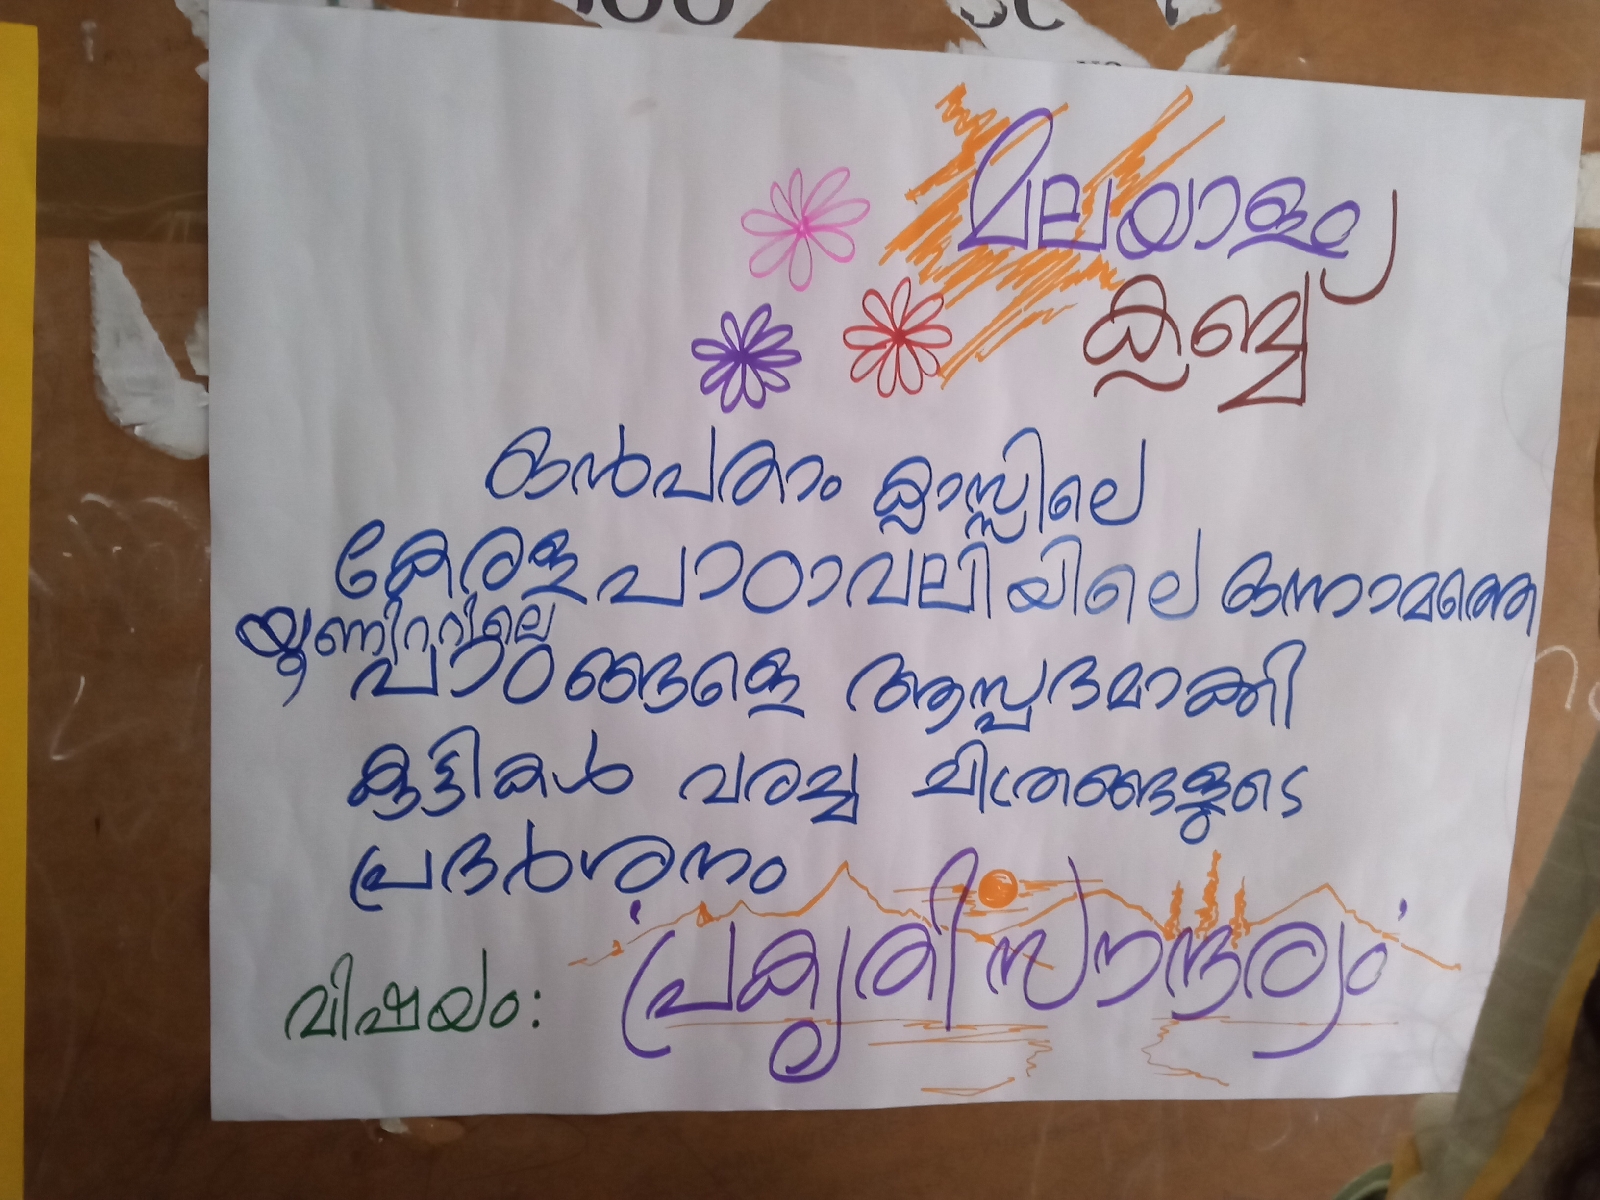 മലയാളം
ക്ലബ്ബ്
ഒൻപതാം ക്ലാസ്സിലെ
കേരള പാഠാവലിയിലെ ഒന്നാമത്തെ
യൂണിററിലെ
പാഠങ്ങളെ ആസ്പദമാക്കി
കുട്ടികൾ വരച്ച ചിത്രങ്ങളുടെ
പ്രദർശനം
വിഷയം: 'പ്രകൃതിസൗന്ദര്യം'